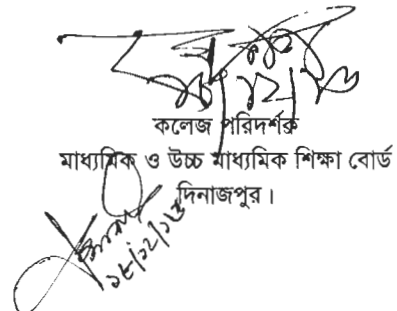 কলেজ পরিদর্শক
মাধ্যমিক ও উচ্চ মাধ্যমিক শিক্ষা বোর্ড
দিনাজপুর।
১৮/১২/১৩